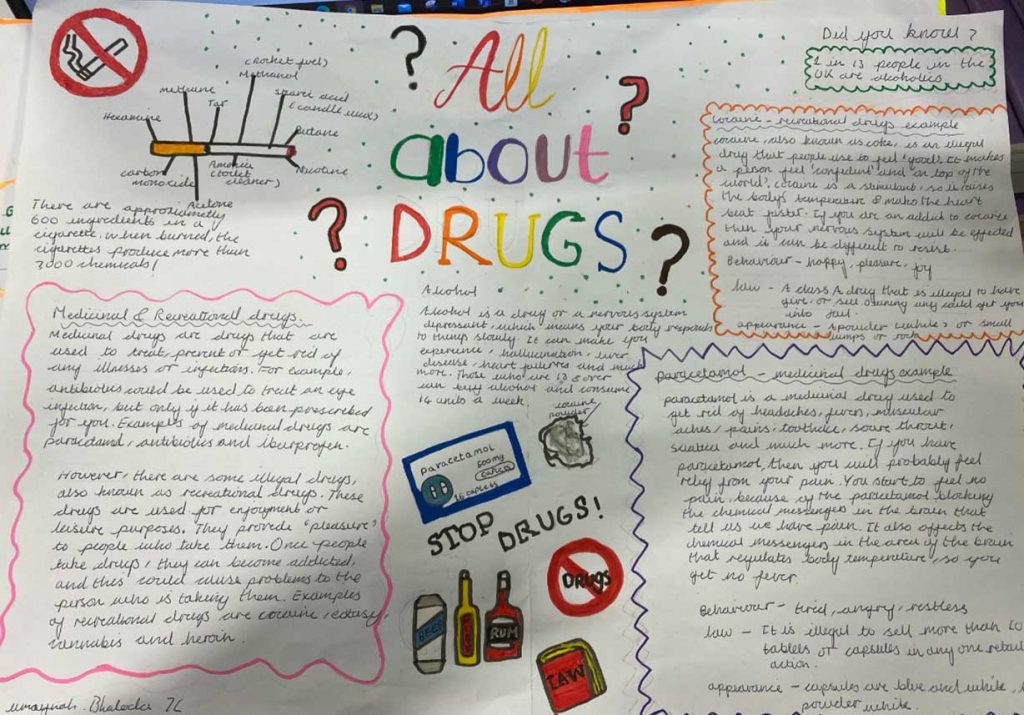 All
about
DRUGS
? ? ? ?
Did you know?
1 in 13 people in the
UK are alcoholics
(rocket fuel)
Methanol
methane
Tar
(candle wax)
Hexamine
Butane
carbon
monoxide
(toilet
cleaner)
Nicotine
Acetone
There are approximately
600 ingredients in a
cigarette. When burned, the
cigarettes produce more than
7000 chemicals!
Medicinal & Recreational drugs.
Medicinal drugs are drugs that are
used to treat, prevent or get rid of
any illnesses or infections. For example,
antibiotics could be used to treat an eye
infection, but only if it has been prescribed
for you. Examples of medicinal drugs are
paracetamol, antibiotics and
However, there are some illegal drugs,
also known as recreational drugs. These
drugs are used for enjoyment or
leisure purposes. They provide "pleasure"
to people who take them. Once people
take drugs, they can become addicted,
and this could cause problems to the
person who is taking them. Examples
of recreational drugs are cocaine, ecstasy,
cannabis and heroin.
Alcohol
Alcohol is a drug or a nervous system
depressant, which means your body responds
to things slowly. It can make you
experience, hallucination, liver
disease, heart and much
more. Those who are 18 & over
can buy alcohol and consume
14 units a week.
cocaine
powder
paracetamol
500mg
16 caplets
STOP DRUGS!
DRUGS
BEER
RUM
LAW
cocaine - recreational drugs example
cocaine, also known as coke, is an illegal
drug that people use to feel 'good'. It makes
a person feel 'confident' and 'on top of the
world'. cocaine is a stimulant, so it raises
the body's temperature & make the heart
beat faster. If you are an addict to cocaine
then your nervous system will be effected
and it can be difficult to resist.
Behaviour - happy, pleasure, joy
law - A class A drug that is illegal to have
give or sell. owning any could get you
into jail.
appearance - a powder (white) or small
lumps or rock
paracetamol - medicinal drugs example
paracetamol is a medicinal drug used to
get rid of headaches, fevers, muscular
aches/pains, toothache, soare throat,
sciatica and much more. If you have
paracetamol, then you will probably feel
relief from your pain. You start to feel no
pain, because of the paracetamol blocking
the chemical messengers in the brain that
tell us we have pain. It also affects the
chemical messengers in the area of the brain
that regulates body temperature, so you
get no fever.
Behaviour - tired, angry, restless
law - It is illegal to sell more than
tablets or capsules in any one retail
action.
appearance - capsules are blue and white,
powder white.
7C